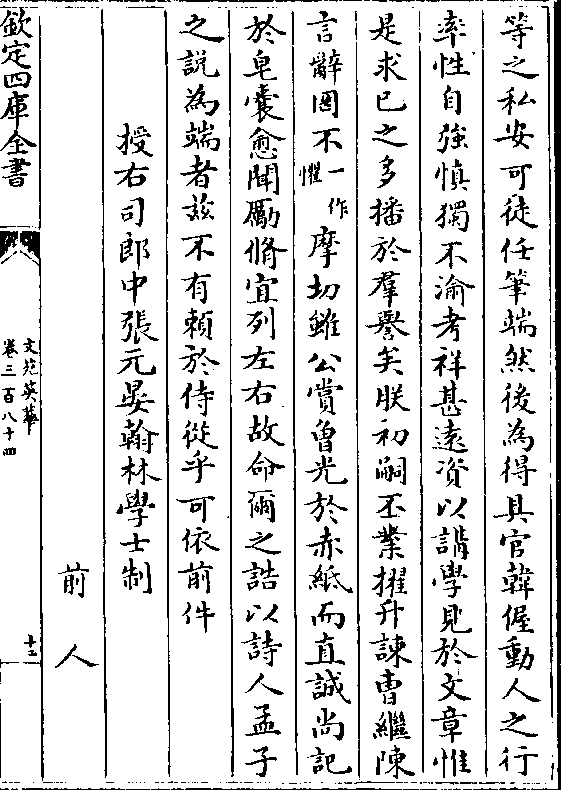 等之私安可徒任筆端然後為得具官韓偓動人之行
率性自強慎獨不渝考祥甚遠資以講學見於文章惟
是求已之多播於羣譽矣朕初嗣丕業擢升諫曹繼陳
言辭罔不一作懼摩切雖公賞曾光於赤紙而直誠尚記
於皂囊愈聞勵脩宜列左右故命爾之誥以詩人孟子
之説為端者兹不有賴於侍從乎可依前件
授右司郎中張元晏翰林學士制
前人
欽定四庫全書
文苑英華
卷三百八十四
十二